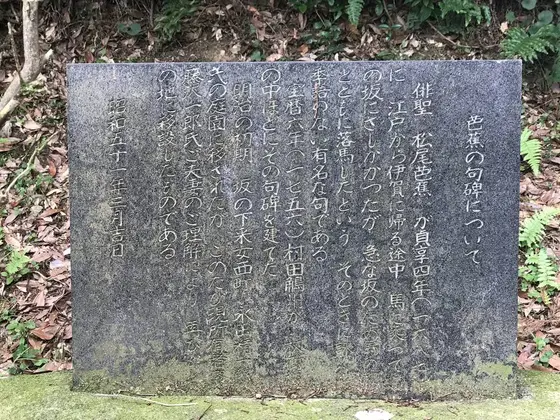 芭蕉の句碑について
俳聖 松尾芭蕉 が貞享四年(一六八
に 江戸から伊賀に帰る途中 馬に
の坂にさしかかつたが 急な坂のため
とともに落馬したという そのときに
季語のない有名な句である
宝暦六年(一七五六)村田鵤
の中ほどにその句碑を建てた
明治の初期 坂の下釆女西町
その庭園に移されたが このたび現所有者
藤 一郎氏ご夫妻のご理解により 再
の地に移設したものである
昭和五十一年二月吉日